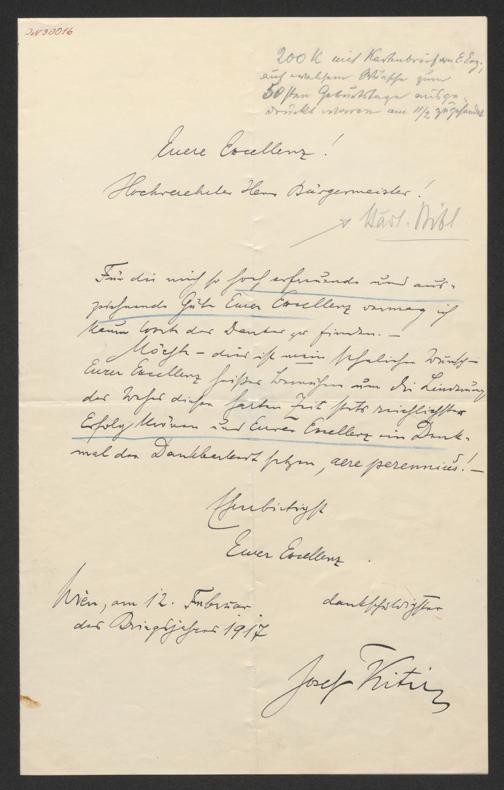 JN 90016
200 K mit Kartenbrief von E. Exz.
auf welchem Wünsche zum
50sten Geburtstage ausge-
drückt waren am 11/2 zugesendet
Euere Excellenz!
Hochverehrter Herr Bürgermeister!
Städt. Bibl
Für die mich so hoch erfreuende und aus-
zeichnende Güte Euer Excellenz vermag ich
kaum Worte des Dankes zu finden. –
Möchte – dies ist mein sehnlichster Wunsch –
Eurer Excellenz heißes Bemühen um die Linderung
des Wehes dieser harten Zeit stets reichlichster
Erfolg krönen und Eurer Excellenz ein Denk-
mal der Dankbarkeit setzen, aere perennius! –
Ehrerbietigst
Euer Excellenz
dankschuldigster
Wien, am 12. Februar
des Kriegsjahres 1917
Josef